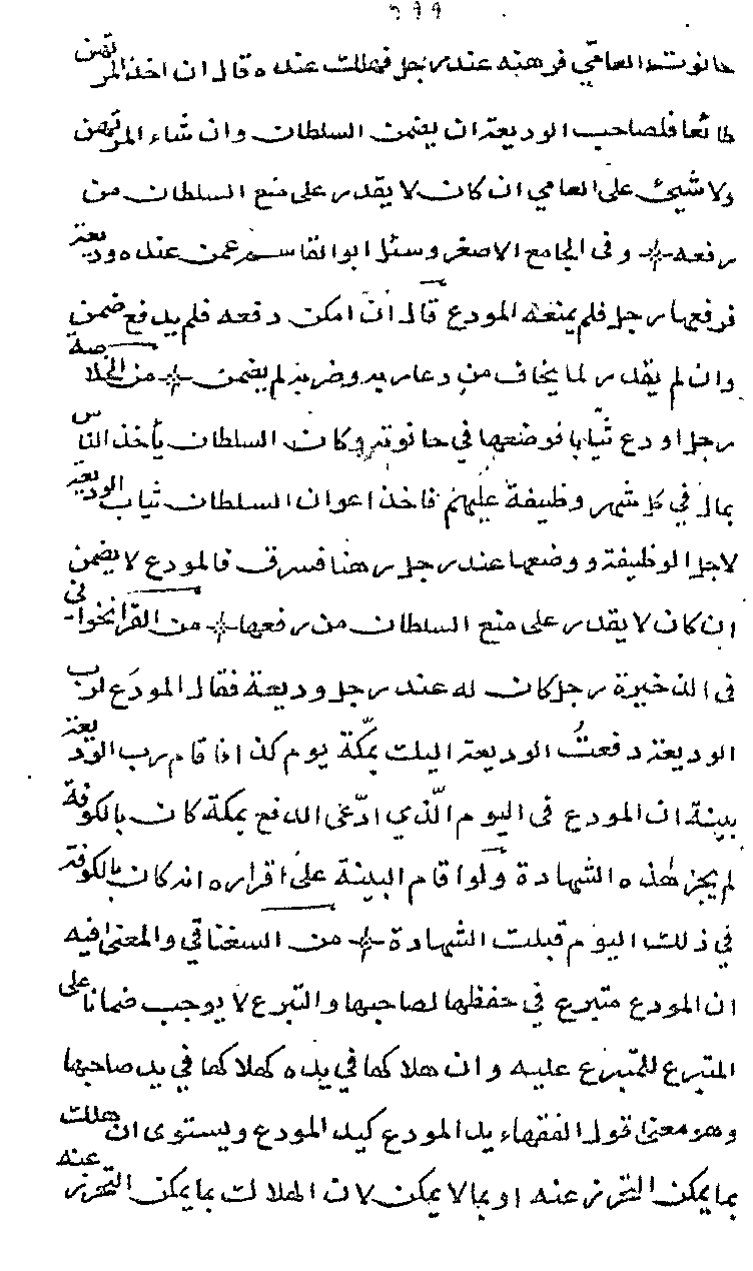 ٦٩٩
حانوته العامي فرهنه عند رجل فهلك عنده قال ان اخذ المرتهن
طائعا فلصاحب الوديعة ان يضمن السلطان وان شاء المرتهن
ولا شيئ على العامي ان كان لا يقدر على منع السلطان من
رفعه وفى الجامع الاصغر وسئل ابو القاسم عمن عنده وديعة
فرفعها رجل فلم يمنعه المودع قال ان امكن دفعه فلم يدفع ضمن
وان لم يقدر لما يخاف من دعارته وضربه لم يضمن من الخلاصة
رجل اودع ثيابا فوضعها في حانوته وكان السلطان يأخذ الناس
بمال في كل شهر وظيفة عليهم فاخذ اعوان السلطان ثياب الوديعة
لاجل الوظيفة ووضعها عند رجل رهنا فسرق فالمودع لا يضمن
ان كان لا يقدر على منع السلطان من رفعها من القرانخوانى
فى الذخيرة رجل كان له عند رجل وديعة فقال المودَع لرب
الوديعة دفعتُ الوديعة اليك بمكّة يوم كذا فاقام رب الوديعة
بينة ان المودع فى اليوم الّذي ادّعى الدفع بمكة كان بالكوفة
لم يجز هٰذه الشهادة ولو اقام البينة على اقراره انه كان بالكوفة
في ذلك اليوم قبلت الشهادة من السغناقي والمعنى فيه
ان المودع متبرع في حفظها لصاحبها والتبرع لا يوجب ضمانا على
المتبرع للمتبرع عليه وان هلاكها في يده كهلاكها في يد صاحبها
وهو معنى قول الفقهاء يد المودع كيد المودع ويستوى ان هلك
بما يمكن التحرز عنه او بما لا يمكن لان الهلاك بما يمكن التحرز عنه